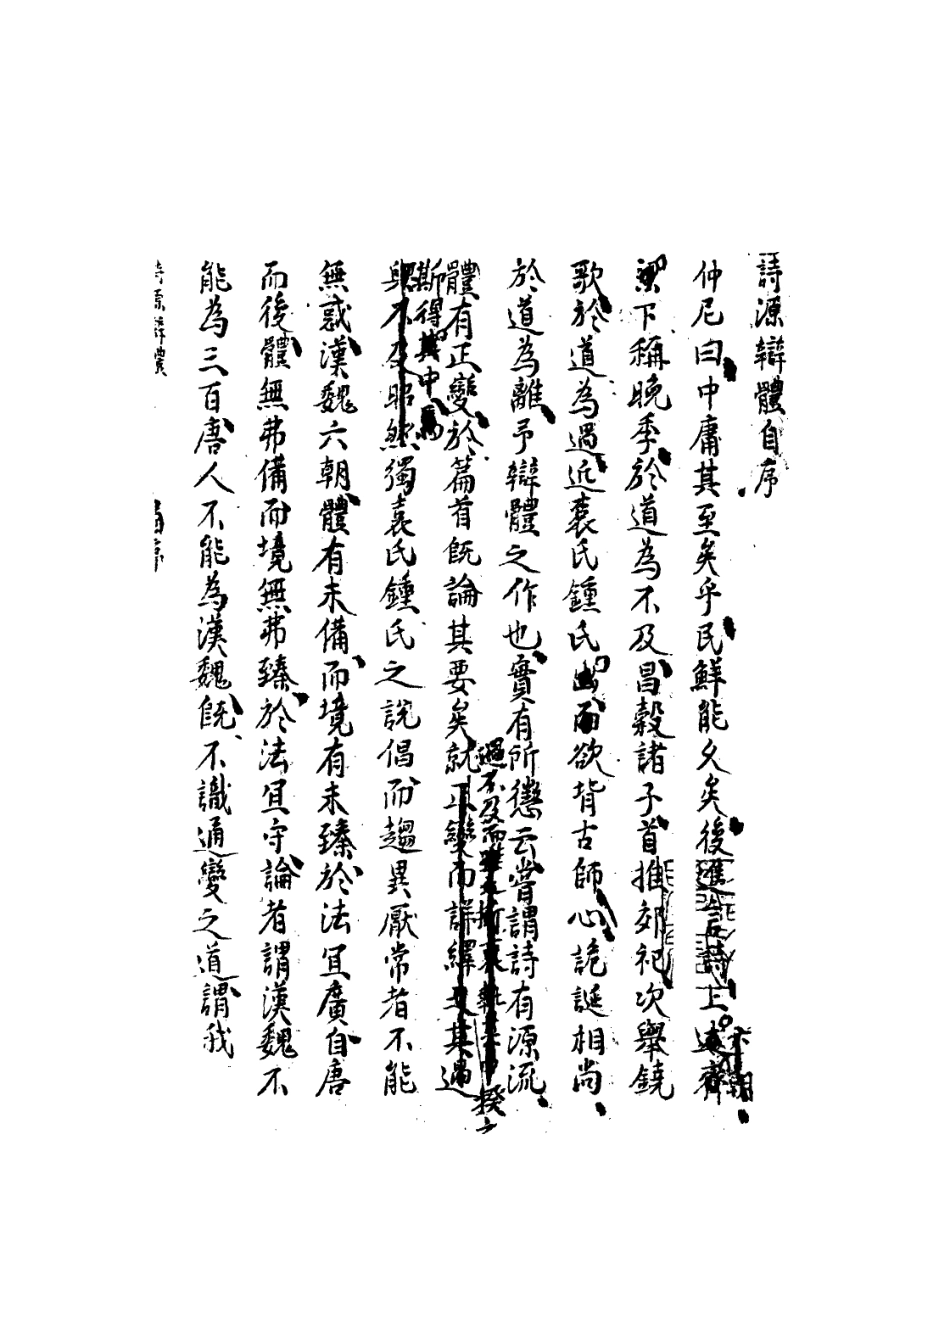 詩源辯體自序
仲尼曰中庸其至矣乎民鮮能久矣後進言詩上述齊
梁下稱晚季於道為不及昌穀諸子首推郊祀次舉鐃
歌於道為過近袁氏鍾氏出而欲背古師心詭誕相尚
於道為離予辯體之作也實有所懲云嘗謂詩有源流
體有正變於篇首既論其要矣就正變而詳繹之其過
過不及而揆之
斯得其中
與不及昭然獨袁氏鍾氏之說倡而趨異厭常者不能
無惑漢魏六朝體有未備而境有未臻於法宜廣自唐
而後體無弗備而境無弗臻於法宜守論者謂漢魏不
能為三百唐人不能為漢魏既不識通變之道謂我
詩源辯體